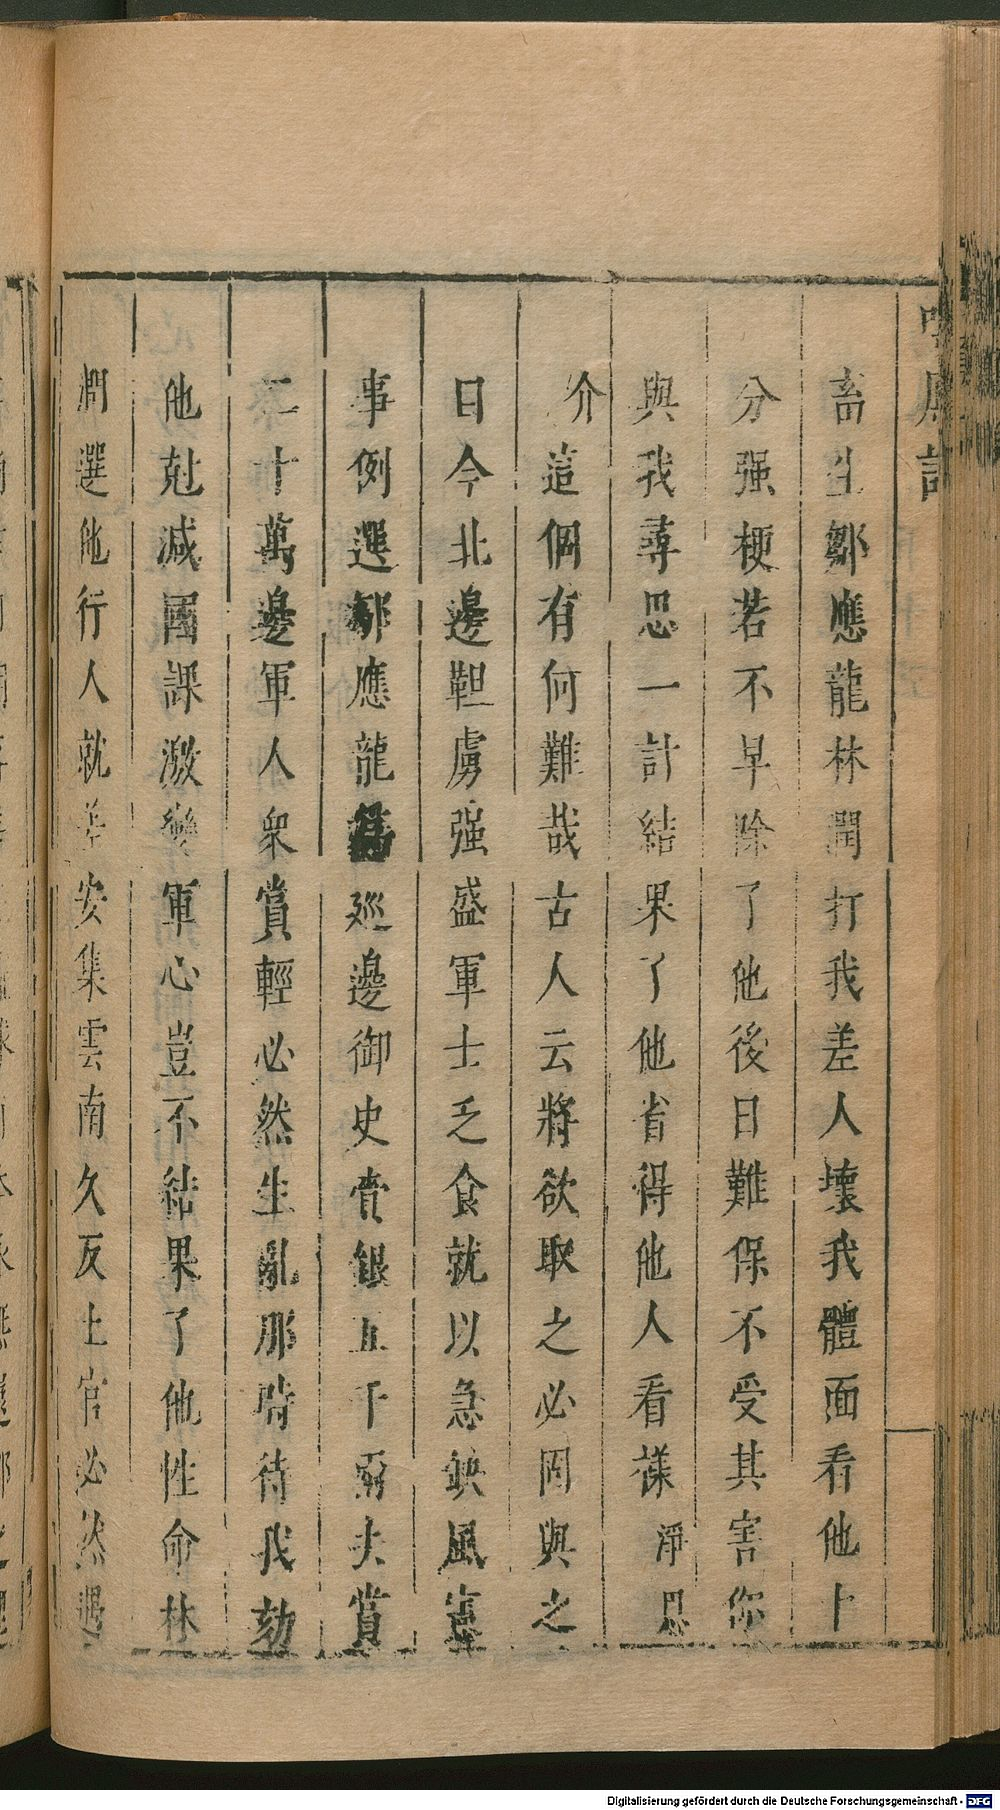 畜生鄒應龍林潤打我差人壞我體面看他十
分强梗若不早除了他後日難保不受其害你
與我尋思一計結果了他省得他人看樣 淨思
介 這個有何難哉古人云將欲取之必固與之
日今北邊靼虜强盛軍士乏食就以急缺風憲
事例選鄒應龍為廵邊御史賫銀五千兩去賞
二十萬邊軍人衆賞輕必然生亂那時待我劾
他尅減國課激變軍心豈不結果了他性命林
潤選他行人就差安集雲南久反土官必然遇
Digitalisierung gefördert durch die Deutsche Forschungsgemeinschaft - DFG